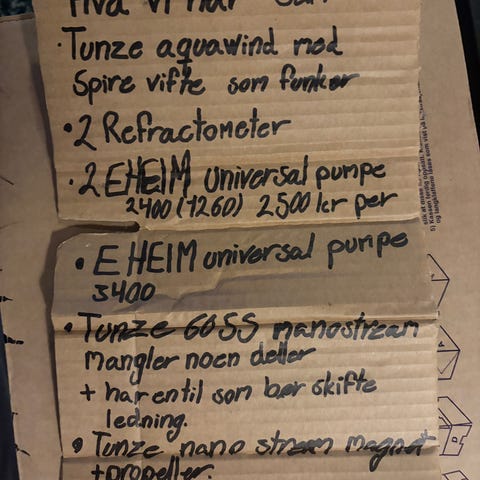 Hva vi har
· Tunze aquawind med
Spire vifte som funker
• 2 Refractometer
• 2 EHEIM universal pumpe
2400 (1260) 2500 kr per
• EHEIM universal pumpe
3400
• Tunze 6055 nanostream
mangler noen deller
+ har en til som bør skifte
ledning.
• Tunze nano stream magnet
+ propeller.